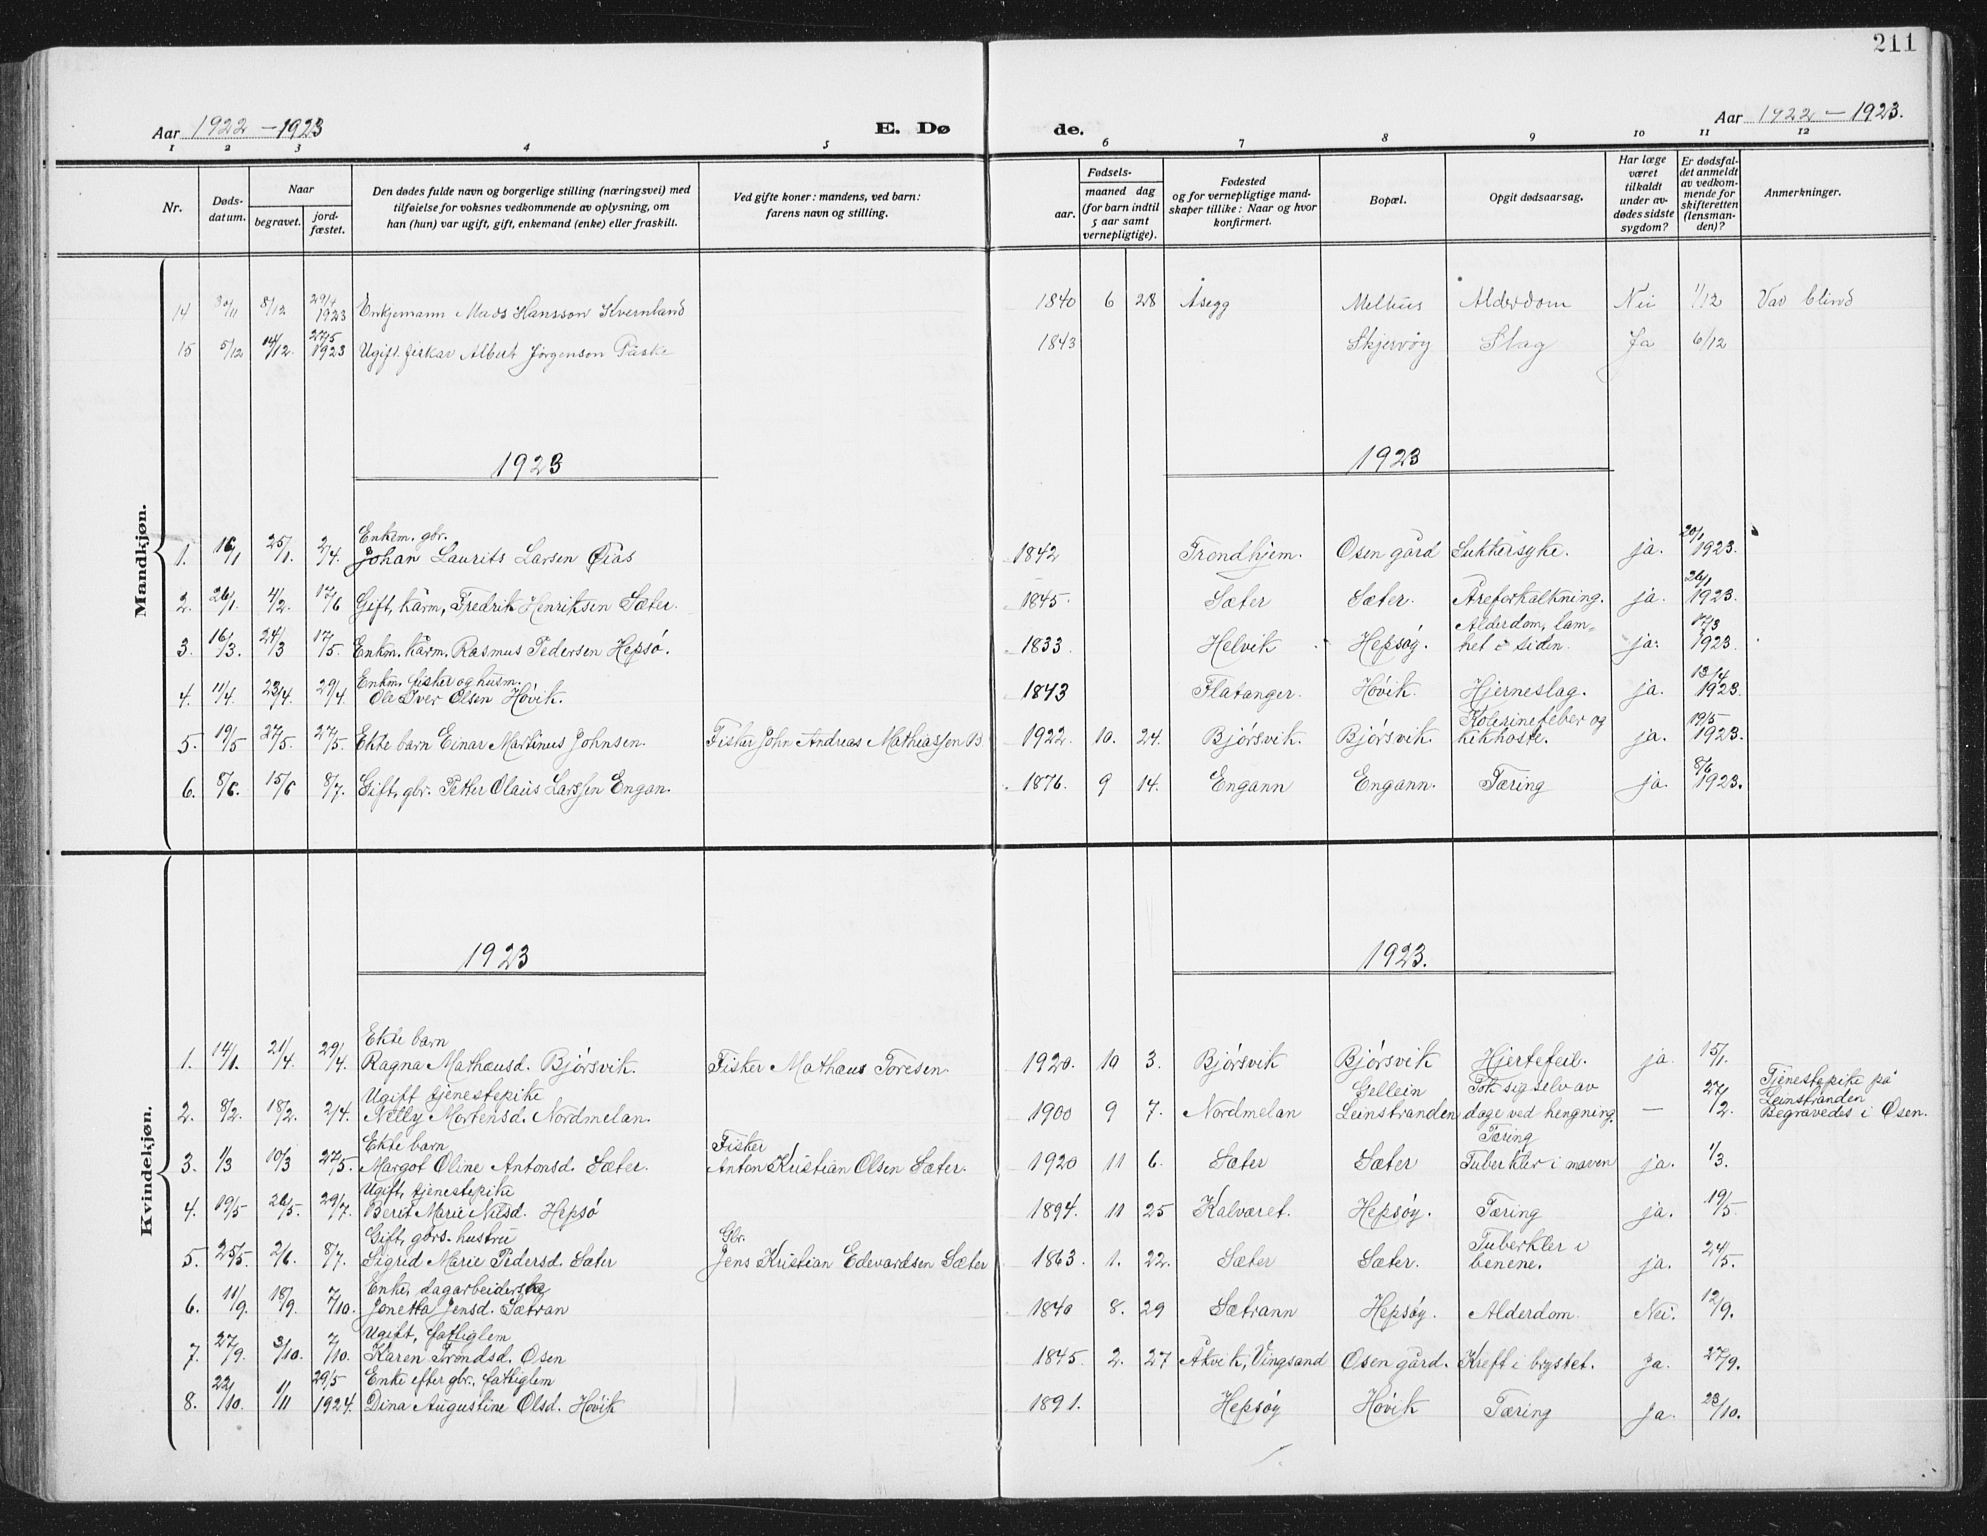 211
Aar 1922 – 1923 E. Dø de. Aar 1922 – 1923.
1 2 3 4 5 6 7 8 9 10 11 12
Nr.
Døds-
datum.
Naar
begravet.
jord-
fæstet.
Den dødes fulde navn og borgerlige stilling (næringsvei) med
tilføielse for voksnes vedkommende av oplysning, om
han (hun) var ugift, gift, enkemand (enke) eller fraskilt.
Ved gifte koner: mandens, ved barn:
farens navn og stilling.
Fødsels-
aar.
maaned dag
(for barn indtil
5 aar samt
vernepligtige).
Fødested
og for vernepligtige mand-
skaper tillike: Naar og hvor
konfirmert.
Bopæl.
Opgit dødsaarsag.
Har læge
været
tilkaldt
under av-
dødes sidste
sygdom?
Er dødsfal-
det anmeldt
av vedkom-
mende for
skifteretten
(lensman-
den)?
Anmerkninger.
Mandkjøn.
14 30/11 8/12 29/4 1923 Enkjemann Mads Hansson Kvernland 1840 6 28 Åsegg Melhus Alderdom Nei 1/12 Var blind
15 5/12 14/12 27/5 1923 Ugift fiskar Albert Jørgenson Påske 1843 Skjervøy Slag Ja 6/12
1923 1923
Enkm. gbr.
1. 16/1 25/1 2/4. Johan Laurits Larsen 1842 Trondhjem. Osen gård Sukkersyke. ja. 20/1 1923.
2. 26/1. 4/2. 17/6 Gift, kårm, Fredrik Henriksen Sæter. 1845. Sæter Sæter. Åreforkalkning. ja. 26/1 1923.
Alderdom, lam=
3. 16/3. 24/3 17/5. Enkm. kårm. Rasmus Pedersen Hepsø. 1833 Helvik Hepsøy. het i siden. ja. 17/3 1923.
Enkm. fisker og husm.
4. 11/4. 23/4. 29/4. Ole Iver Olsen Høvik. 1843 Flatanger. Høvik. Hjerneslag. ja. 13/4 1923.
Kolerinefeber og
5. 19/5 27/5. 27/5. Ekte barn Einar Martinus Johnsen. Fisker John Andreas Mathiassen B 1922. 10. 24. Bjørsvik. Bjørsvik. kikhoste. ja. 19/5 1923.
6. 8/6. 15/6 8/7. Gift, gbr. Petter Olaus Larssen Engan. 1876. 9 14. Engann Engann. Tæring ja. 8/6 1923.
Kvindekjøn.
1923 1923.
Ekte barn
1. 14/1. 21/4. 29/4. Ragna Mathæusd. Bjørsvik. Fisker Mathæus Toresen 1920. 10 3. Bjørsvik Bjørsvik Hjertefeil. ja. 15/1.
Ugift tjenestepike Gellein Tok sig selv av Tjenestepike på
Leinstranden
2. 8/2. 18/2. 2/4. Nelly Mortensd. Nordmelan. 1900 9 7. Nordmelan Leinstranden dage ved hengning. — 27/2. Begravedes i Osen.
Ekte barn Fisker Tæring
3. 1/3 10/3 27/5. Margot Oline Antonsd. Sæter. Anton Kristian Olsen Sæter. 1920 11 6. Sæter Sæter Tuberkler i maven ja. 1/3.
Ugift, tjenestepike
4. 19/5 26/5. 29/7. Berit Marie Nilsd. Hepsø 1894. 11 25 Kalværet. Hepsøy. Tæring ja. 19/5.
Gift, gårs. hustru Gbr. Tuberkler i
5. 25/5. 2/6. 8/7. Sigrid Marie Pedersd. Sæter Jens Kristian Edevardsen Sæter 1863 1. 22. Sæter Sæter. benene. ja. 24/5.
Enke, dagarbeiderske
6. 11/9. 18/9. 7/10. Jonetta Jensd. Sætran 1840 8. 29 Sætrann Hepsøy. Alderdom. Nei. 12/9.
Ugift, fattiglem
7. 27/9. 3/10. 7/10. Karen Trondsd. Osen 1845. 2. 27 Åkvik, Vingsand Osen gård. Kreft i brystet. Ja. 27/9.
Enke efter gbr., fattiglem
8. 22/10. 1/11 29/5 1924. Dina Augustine Olsd. Høvik 1891. Hepsøy Høvik Tæring Ja. 23/10.